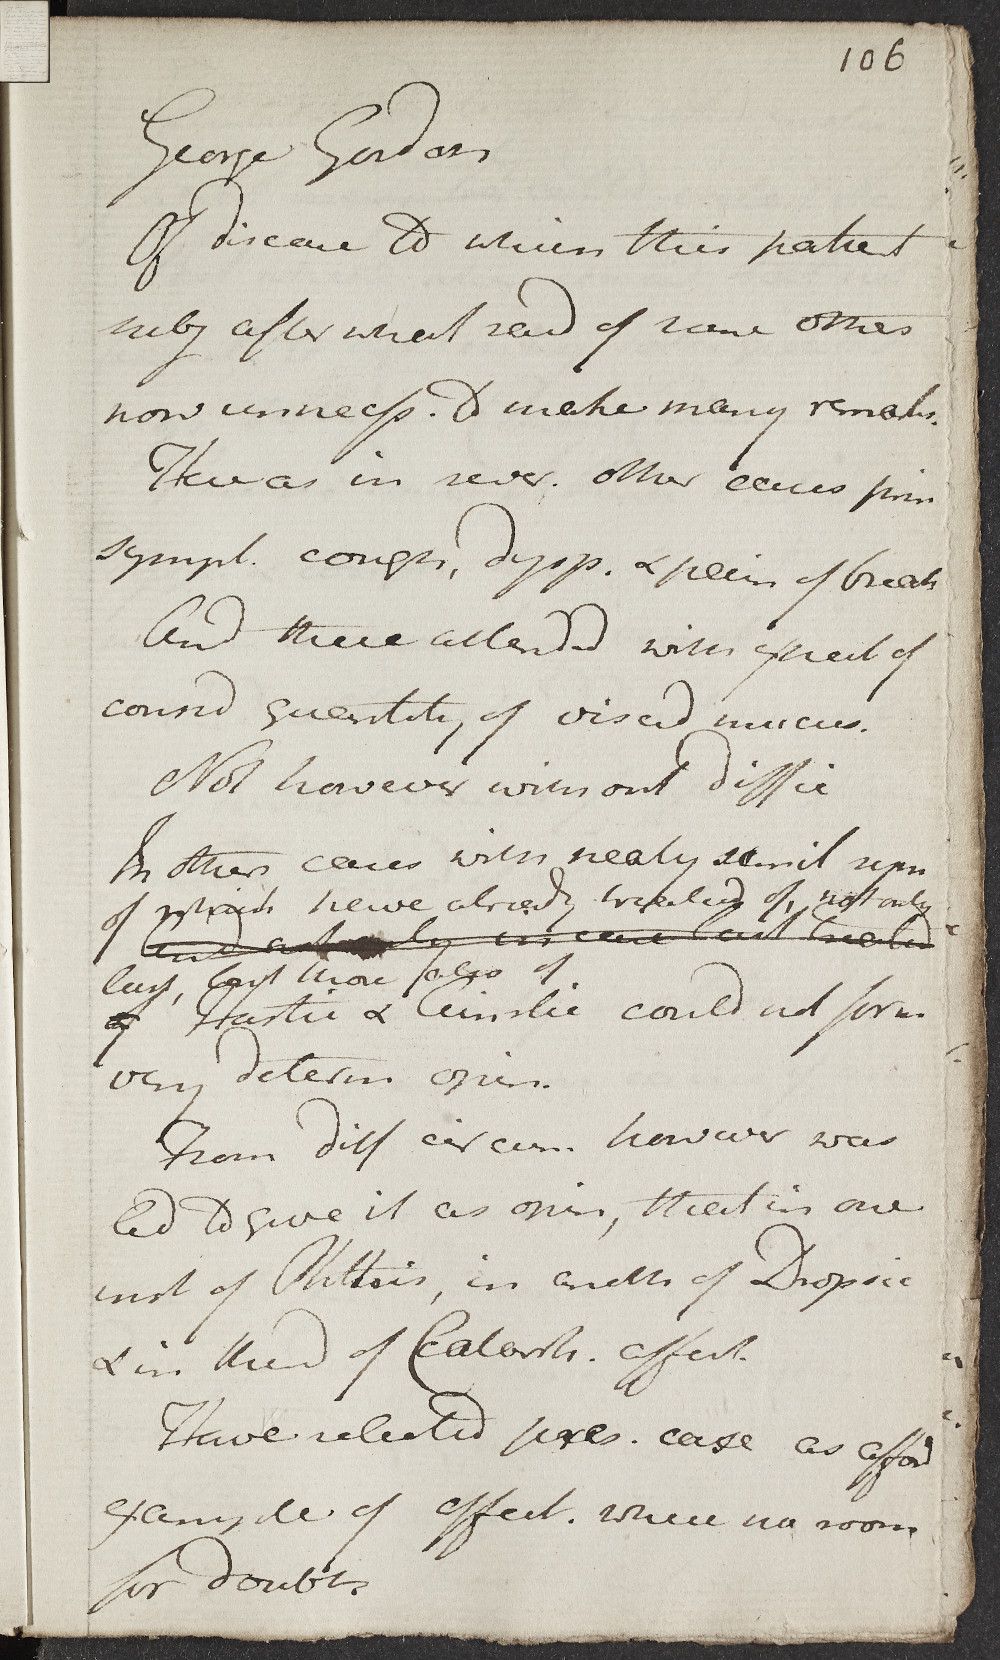 106
George Gordon
Of disease to which this patient
subj after what said of some others
now unnecess. to make many remarks.
Here as in sever. other cases prin
sympt. cough, dysp. & pain of breast
And these attended with expect of
consid quantity of viscid mucus.
Not however without diffic
In others cases with nearly simil sym
of which have already treated of, not only
And already in case last treated
last, but those also of
of Hastie & Ainslie could not form
very determ opin.
From diff circum however was
led to give it as opin, that in one
inst of Phthisis, in anoth of Dropsie
& in third of Catarrh. affect.
Have selected pres. case as afford
example of affect. where no room
for doubts